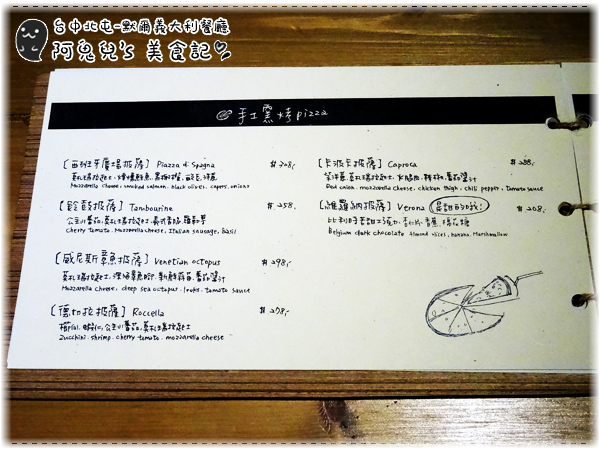 台中北屯-默爾義大利餐廳
阿兔兒's 美食記
手工窯烤pizza
[西班牙廣場披薩] Piazza di Spagna
莫札瑞拉起士.煙燻鮭魚.黑橄欖.酸豆.洋蔥
Mozzarella cheese.smoked salmon.black olives.capers.onions
[鈴鼓披薩] Tambourine $258.-
公主小番茄.莫札瑞拉起士.義式香腸.羅勒葉
Cherry tomato.Mozzarella cheese.Italian sausage.basil
[威尼斯章魚披薩] Venetian octopus $298.-
莫札瑞拉起士.深海章魚腳.新鮮蒜苗.番茄醬汁
Mozzarella cheese.deep sea octopus.leeks.tomato sauce
[德切拉披薩] Roccella
櫛瓜.蝦仁.公主小番茄.莫札瑞拉起士
Zucchini.shrimp.cherry tomato.mozzarella cheese
[卡波卡披薩] Caproca $288.-
紫洋蔥.莫札瑞拉起士.雞腿肉.辣椒.番茄醬汁
Red onion.mozzarella cheese.chicken thigh.chili pepper.tomato sauce
[維羅納披薩] Verona 是甜的哦!
比利時苦甜巧克力.杏仁片.香蕉.棉花糖
Belgium dark chocolate Almond slices.banana.Marshmallow